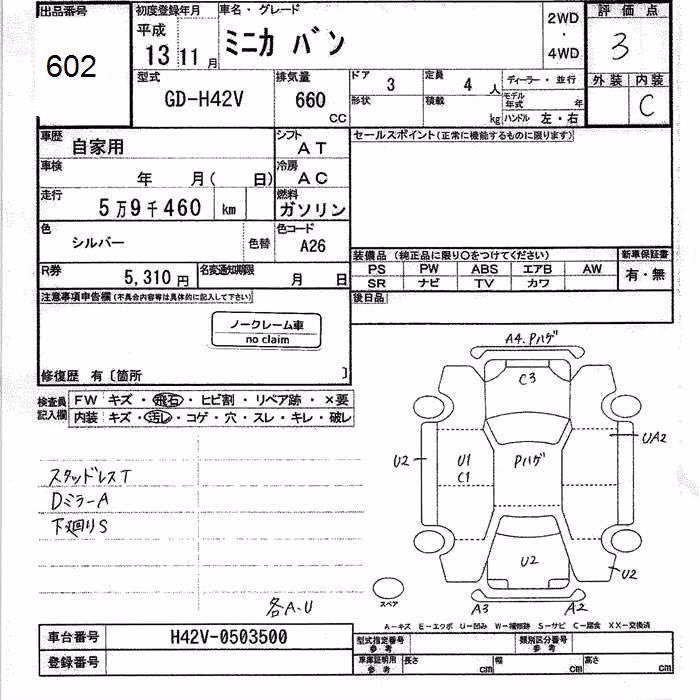 出品番号
602
初度登録年月
平成
13 11 月
車名・グレード
ミニカ バン
2WD
・
4WD
評価点
3
外装 内装
C
型式
GD-H42V
排気量
660
CC
ドア
3
定員
4 人
形状
積載
kg
ディーラー・並行
モデル年式 年
ハンドル 左・右
車歴
自家用
シフト
AT
車検
年 月( 日)
冷房
AC
走行
5万9千460 km
燃料
ガソリン
色
シルバー
色替
色コード
A26
R券
5,310 円
名変通知期限
月 日
セールスポイント(正常に機能するものに限ります)
装備品(純正品に限り〇をつけてください)
PS PW ABS エアB AW
SR ナビ TV カワ
新車保証書
有・無
後日品
注意事項申告欄(不具合内容等は具体的に記入して下さい)
ノークレーム車
no claim
修復歴 有〔箇所 〕
検査員
記入欄
FW キズ・飛石・ヒビ割・リペア跡・×要
内装 キズ・汚レ・コゲ・穴・スレ・キレ・破レ
スタッドレスT
DミラーA
下廻りS
各A.U
A4.Pハゲ
C3
U2
U1
C1
Pハゲ
UA2
U2
U2
スペア
A3
A2
A-キズ E-エクボ U-凹み W-補修跡 S-サビ C-腐食 XX-交換済
車台番号
H42V-0503500
登録番号
型式指定番号
参考
類別区分番号
参考
車庫証明用
参考
長さ cm
幅 cm
高さ cm